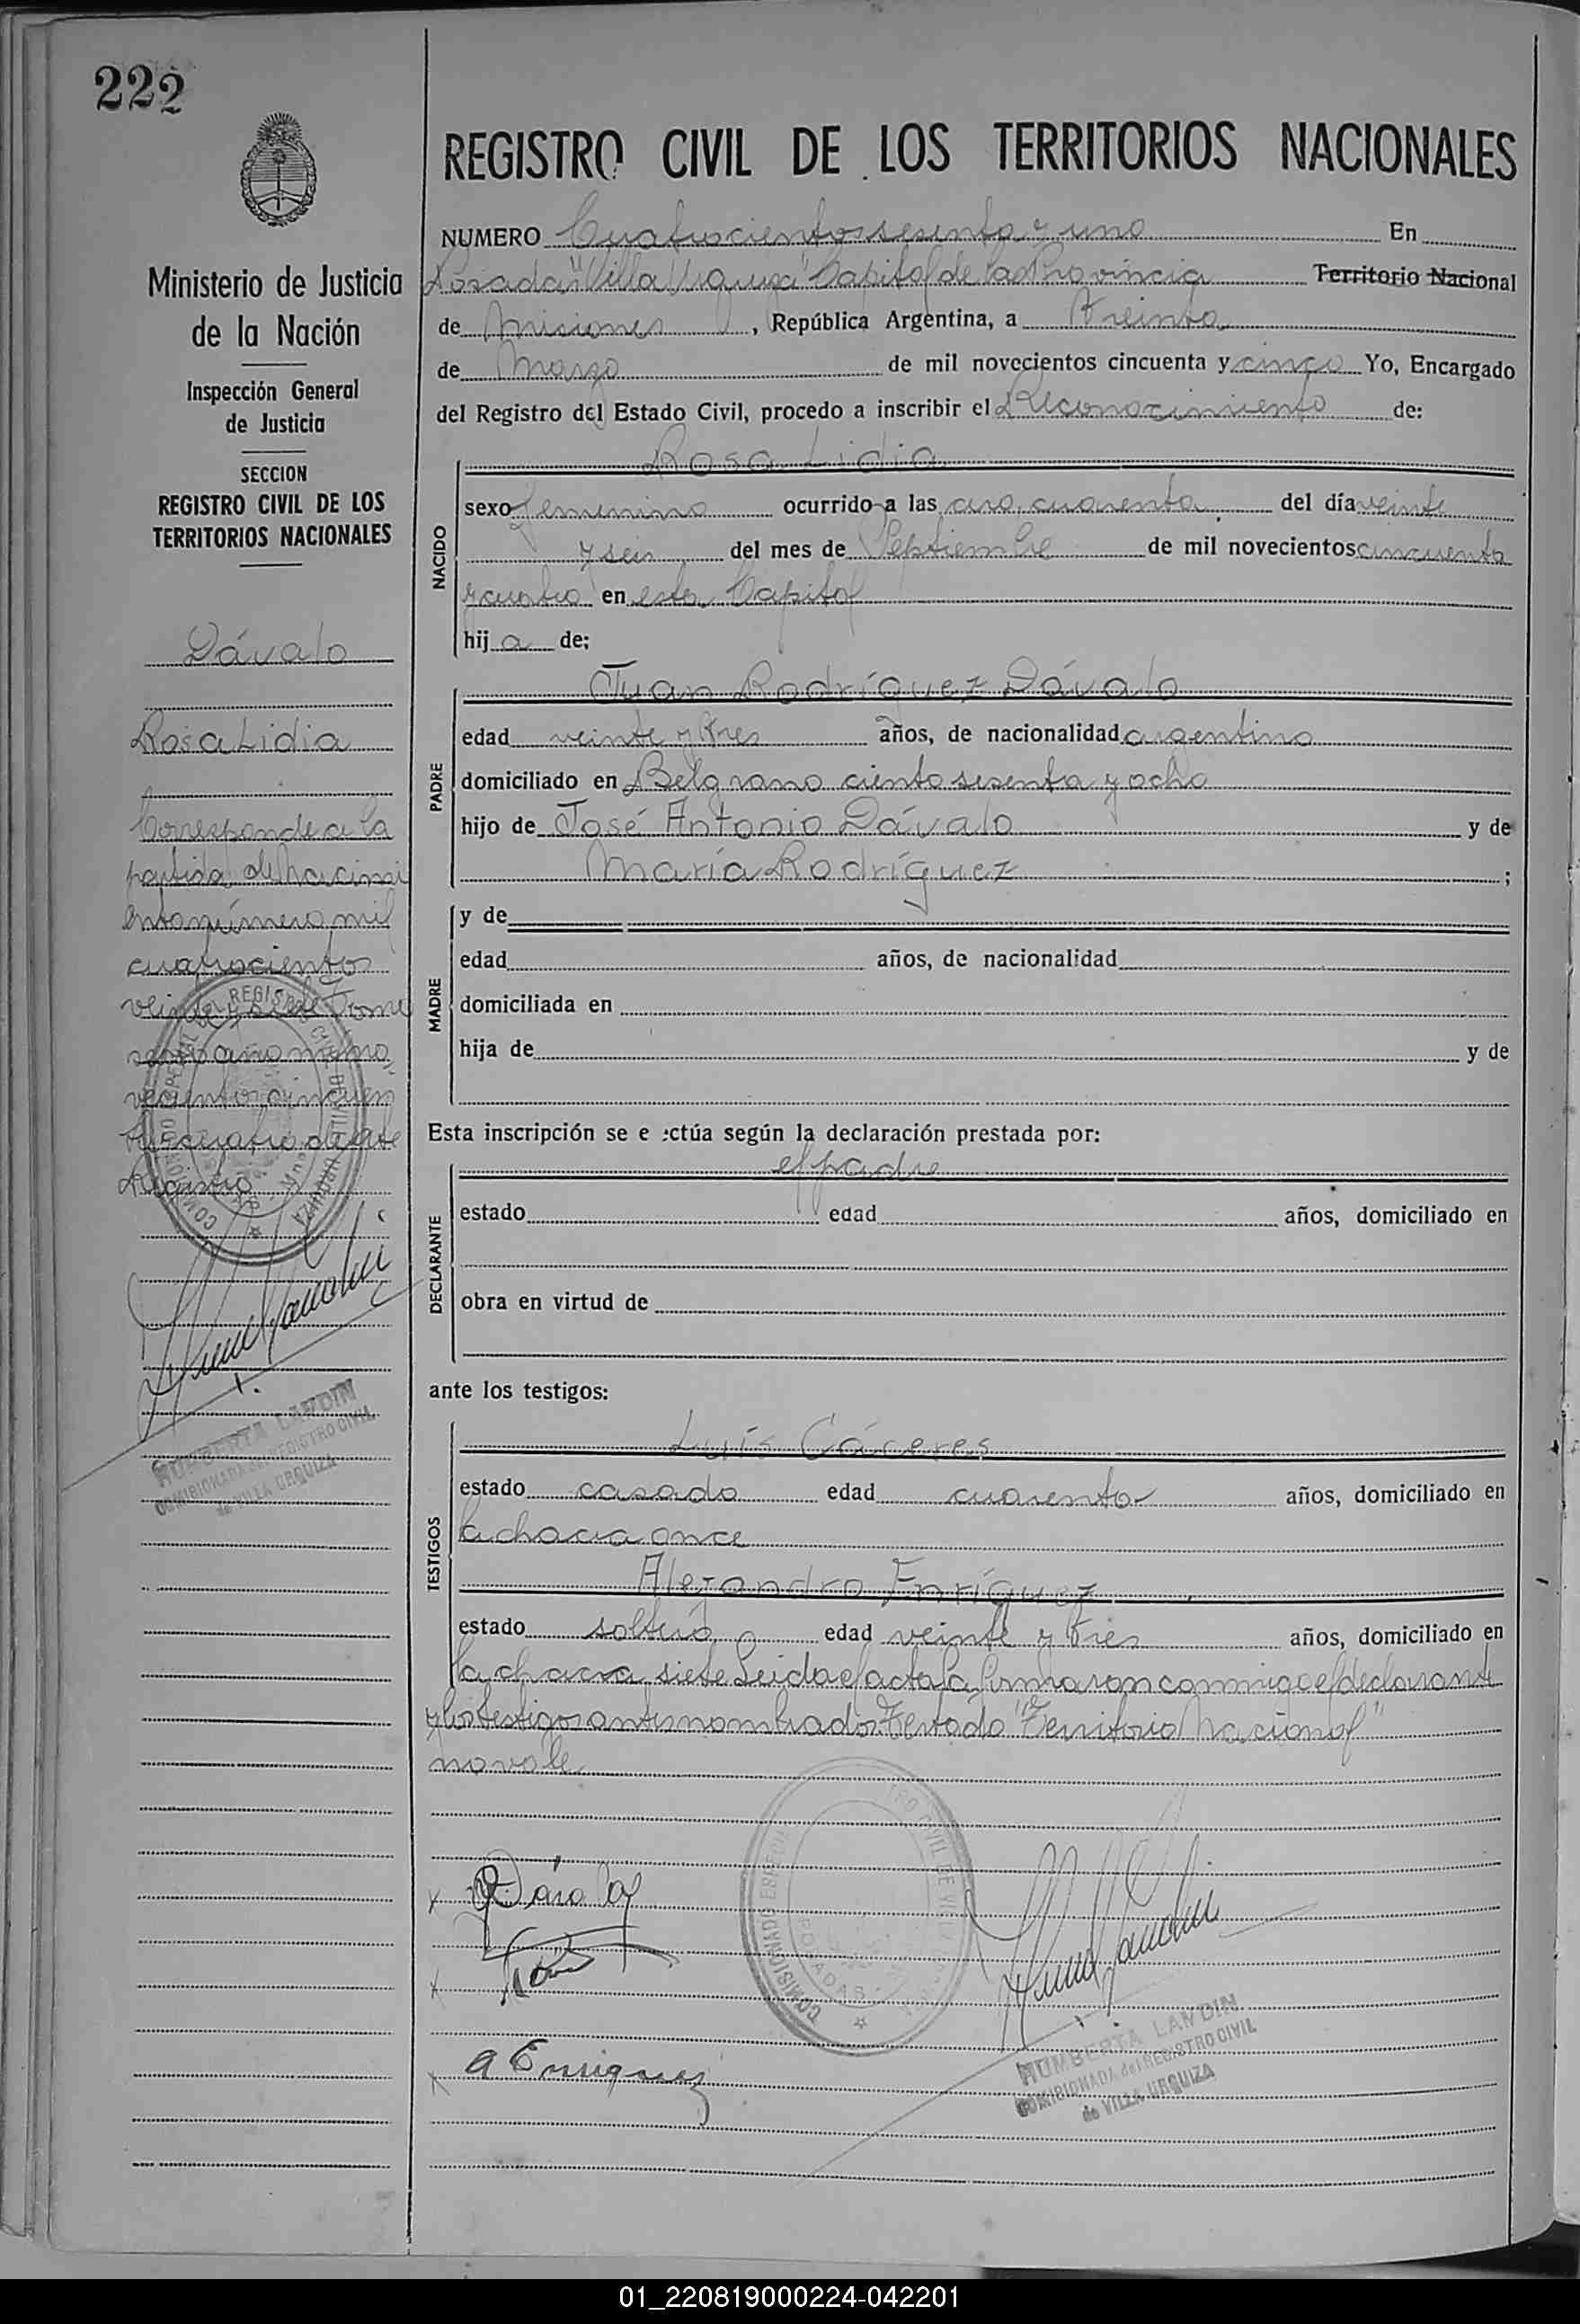 222
REGISTRO CIVIL DE LOS TERRITORIOS NACIONALES
Ministerio de Justicia
de la Nación
Inspección General
de Justicia
SECCION
REGISTRO CIVIL DE LOS
TERRITORIOS NACIONALES
Dávalo
Rosa Lidia
Corresponde a la
partida de Nacimi
ento número mil
cuatrociento
veinte y siete Tomo
año mil no
veciento cincuen
ta y cuatro de este
Registro
HUMBERTA LANDIN
COMISIONADA del REGISTRO CIVIL
de VILLA URQUIZA
NUMERO Cuatrocientos sesenta y uno En
Posadas "Villa Urquiza" Capital de la Provincia Territorio Nacional
de Misiones, República Argentina, a Treinta
de Marzo de mil novecientos cincuenta y cinco Yo, Encargado
del Registro del Estado Civil, procedo a inscribir el Reconocimiento de:
Rosa Lidia
NACIDO
sexo femenino ocurrido a las cero cuarenta del día veinte
y seis del mes de Septiembre de mil novecientos cincuenta
y cuatro en esta Capital
hija de:
Juan Rodríguez Dávalo
PADRE
edad veinte y tres años, de nacionalidad argentino
domiciliado en Belgrano ciento sesenta y ocho
hijo de José Antonio Dávalo y de
María Rodríguez ;
MADRE
y de
edad años, de nacionalidad
domiciliada en
hija de y de
Esta inscripción se e ectúa según la declaración prestada por:
el padre
DECLARANTE
estado edad años, domiciliado en
obra en virtud de
ante los testigos:
Luís Cáceres
TESTIGOS
estado casado edad cuarenta años, domiciliado en
la chacra once
Alejandro Enríquez
estado soltero edad veinte y tres años, domiciliado en
la chacra siete Leida el acta la firmaron conmigo el declarante
y los testigos antes nombrados Testado "Territorio Nacional"
no vale
Dávalo
A Enriquez
COMISIONADO ESPECIAL
POSADAS
HUMBERTA LANDIN
COMISIONADA del REGISTRO CIVIL
de VILLA URQUIZA
01_220819000224-042201